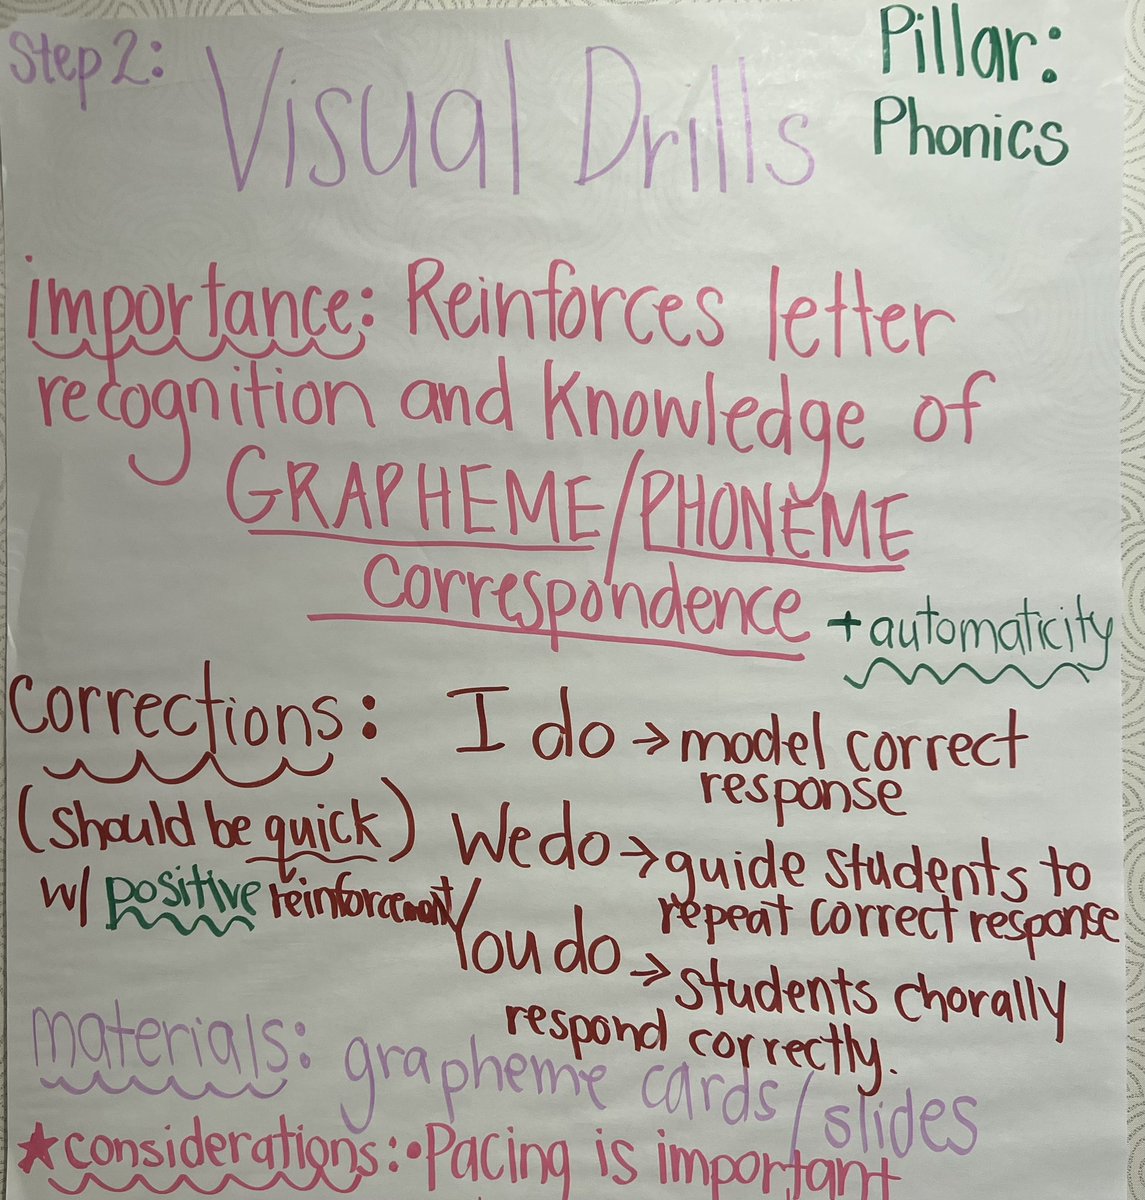 Step 2: Visual Drills
Pillar:
Phonics
importance: Reinforces letter
recognition and knowledge of
GRAPHEME/PHONEME
correspondence + automaticity
corrections:
(should be quick)
w/ positive reinforcement
I do → model correct
response
We do → guide students to
repeat correct response
You do → students chorally
respond correctly.
materials: grapheme cards/slides
★considerations: • Pacing is important